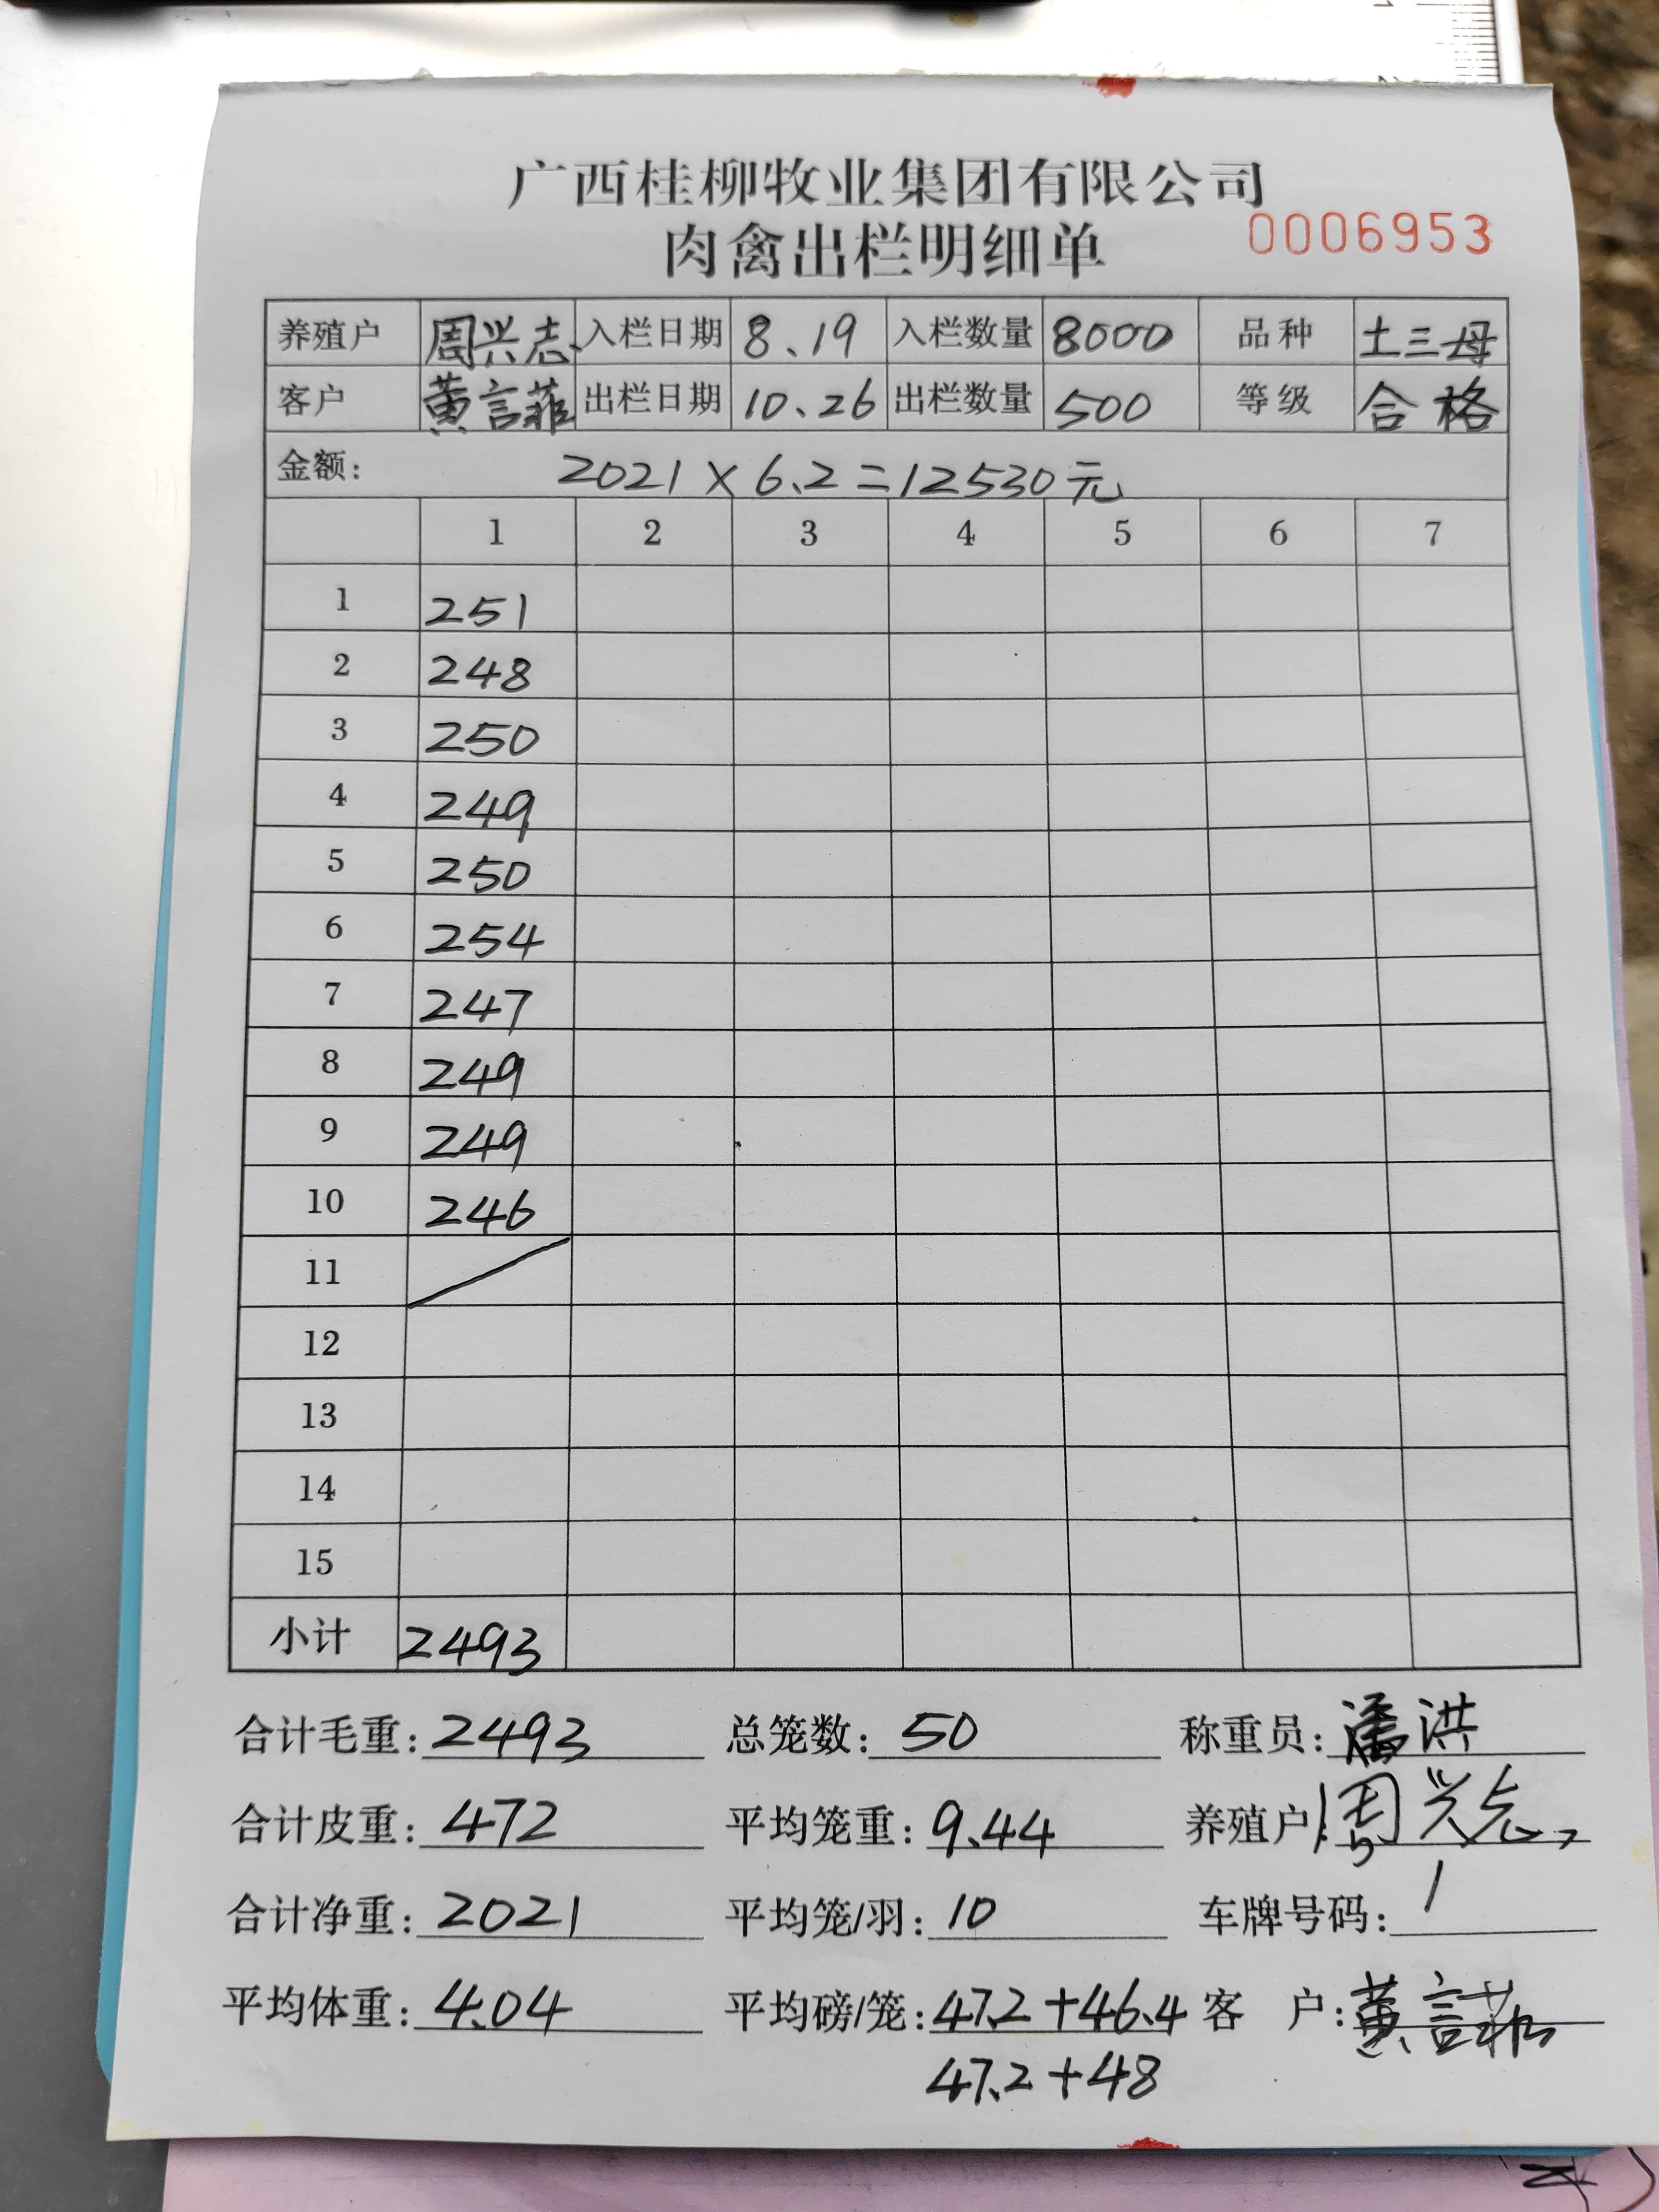 广西桂柳牧业集团有限公司
肉禽出栏明细单 0006953
养殖户 周兴志 入栏日期 8.19 入栏数量 8000 品种 土三母
客户 黄言菲 出栏日期 10.26 出栏数量 500 等级 合格
金额: 2021×6.2=12530元
1 2 3 4 5 6 7
1 251
2 248
3 250
4 249
5 250
6 254
7 247
8 249
9 249
10 246
11
12
13
14
15
小计 2493
合计毛重: 2493 总笼数: 50 称重员: 潘洪
合计皮重: 472 平均笼重: 9.44 养殖户: 周兴志
合计净重: 2021 平均笼/羽: 10 车牌号码: /
平均体重: 4.04 平均磅/笼: 47.2+46.4 客 户: 黄言菲
47.2+48